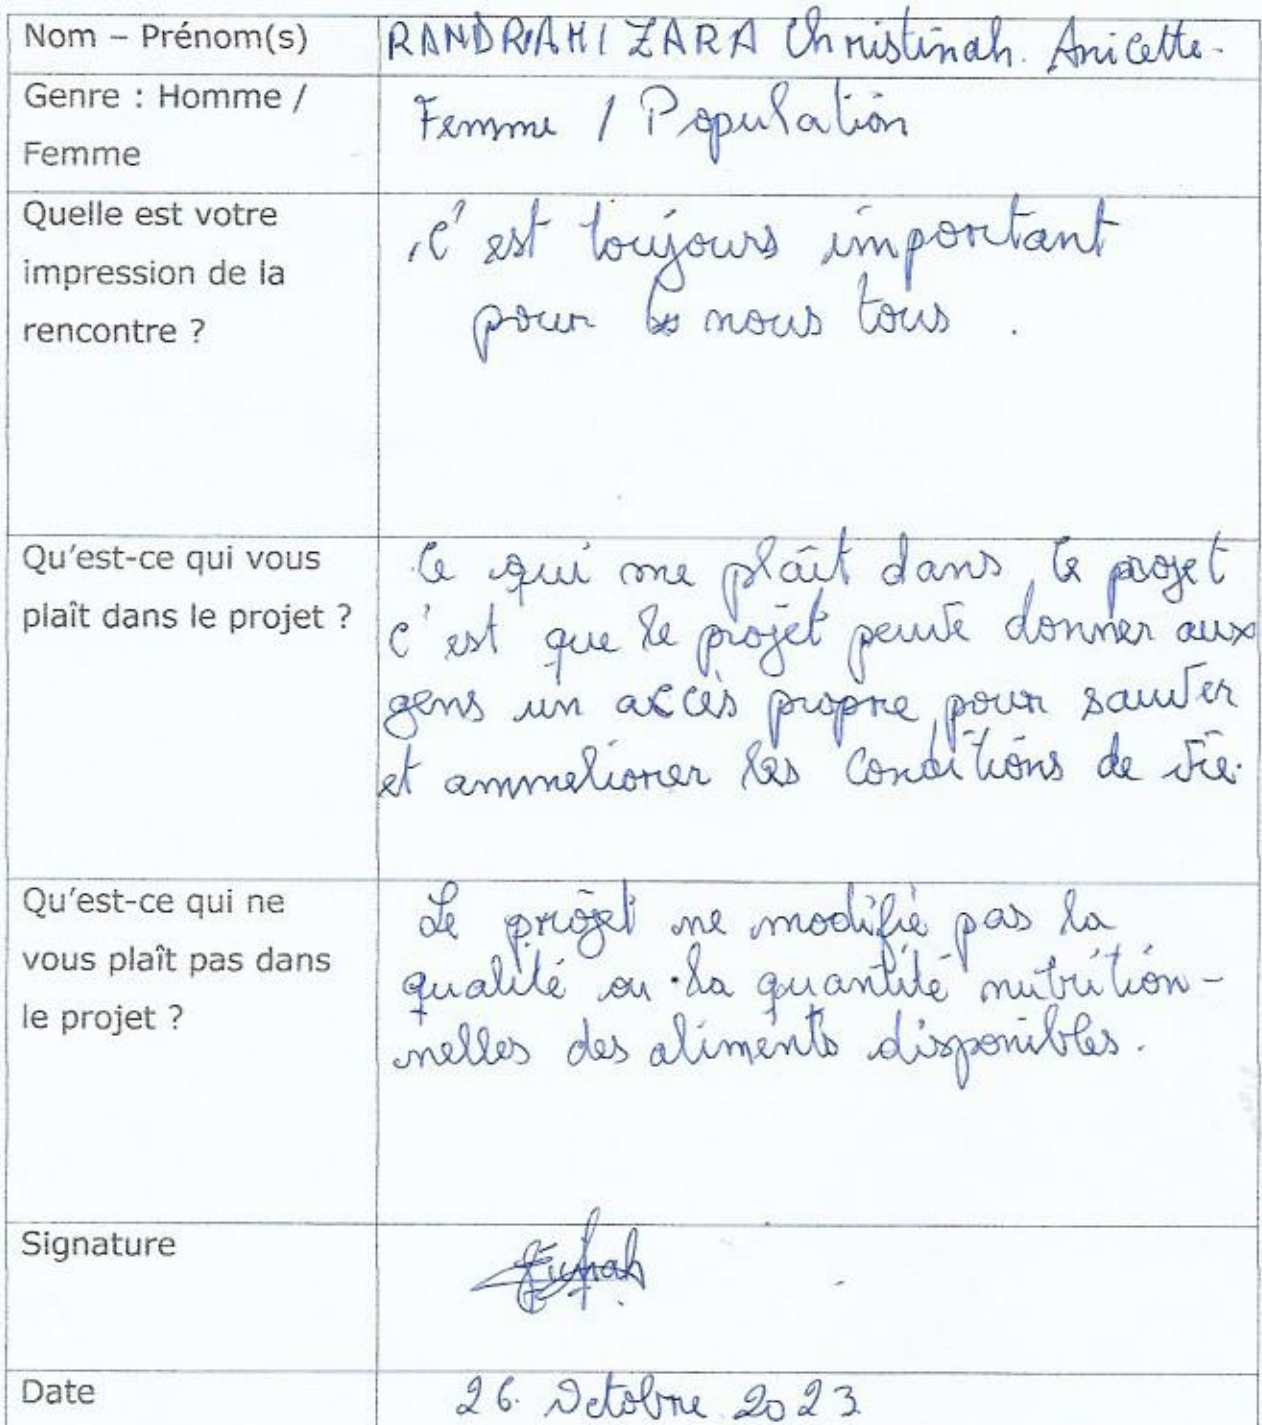 Nom – Prénom(s)
RANDRIAMIZARA Christinah. Anicette.
Genre : Homme /
Femme
Femme / Population
Quelle est votre
impression de la
rencontre ?
C'est toujours important
pour nous tous.
Qu'est-ce qui vous
plaît dans le projet ?
Ce qui me plaît dans le projet
c'est que le projet peute donner aux
gens un accès propre pour sauver
et ammeliorer les conditions de vie.
Qu'est-ce qui ne
vous plaît pas dans
le projet ?
Le projet ne modifie pas la
qualité ou la quantité nutrition-
nelles des aliments disponibles.
Signature
Date
26. Octobre 2023